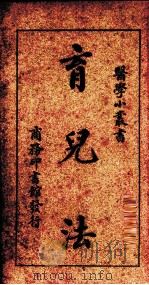 醫學小叢書
育兒法
商務印書館發行